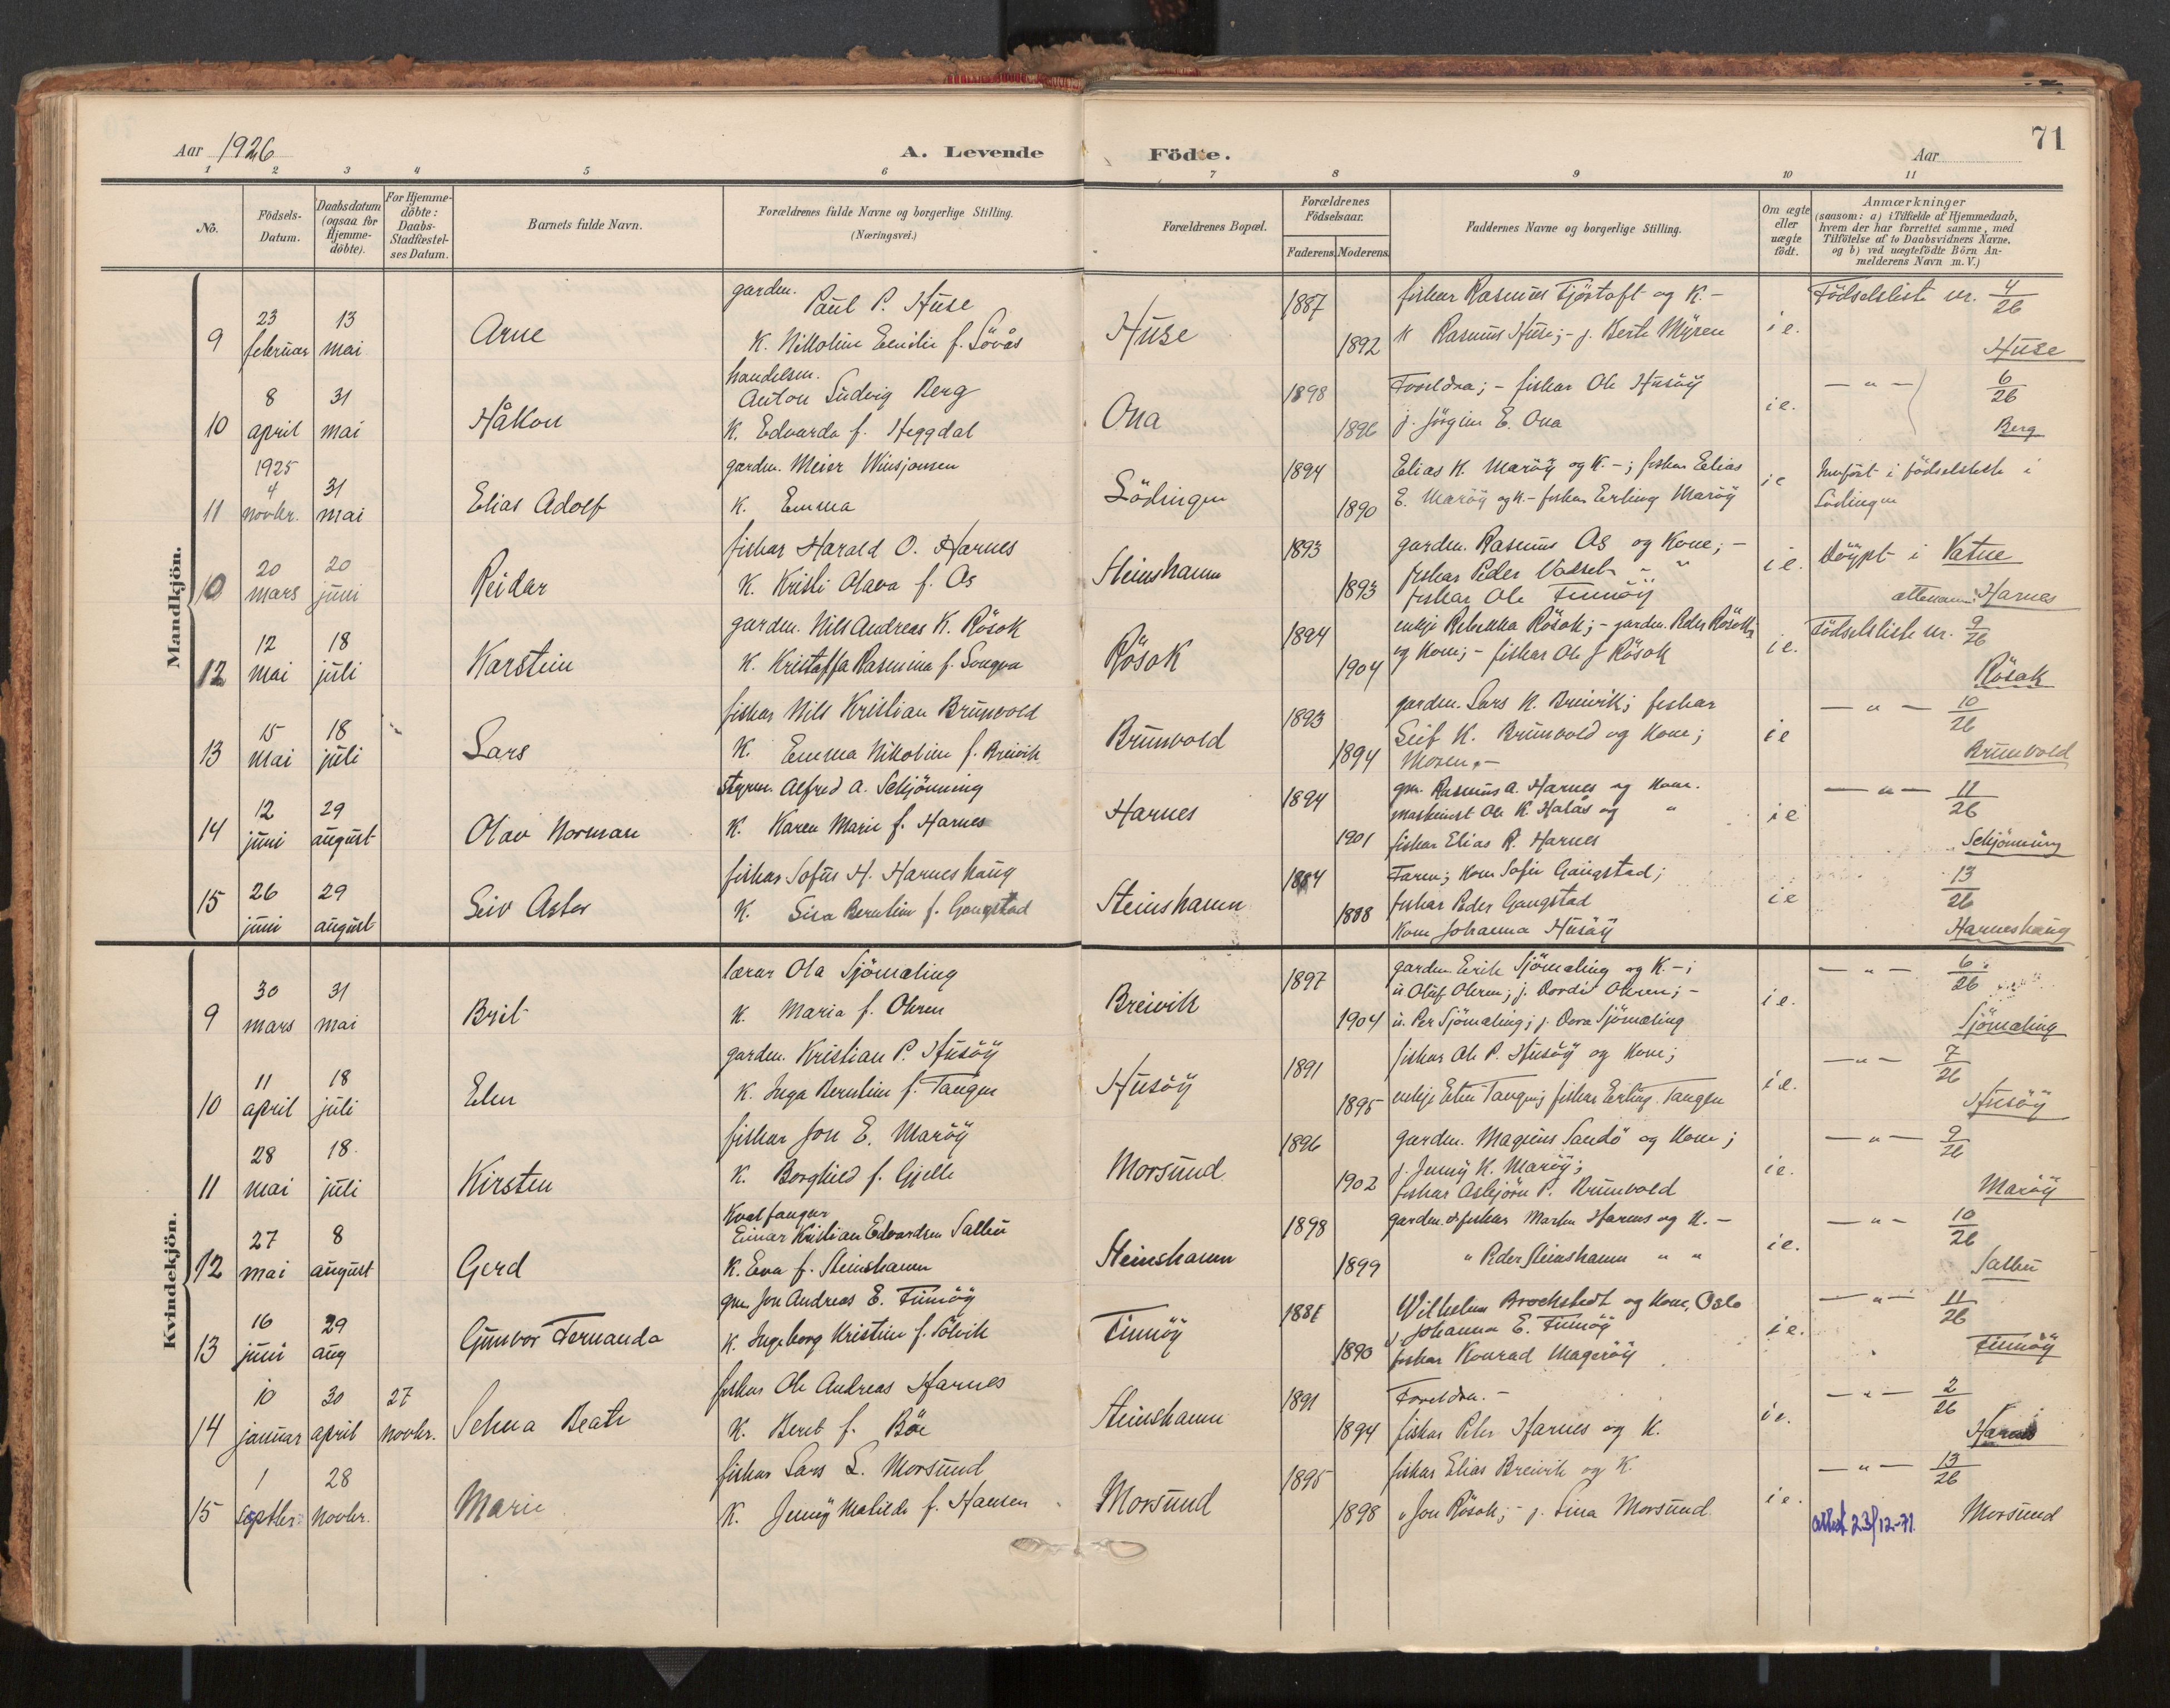 71
Aar 1926
A. Levende
Födte.
Aar
1 2 3 4 5 6 7 8 9 10 11
No.
Födsels-Datum.
Daabsdatum (ogsaa for Hjemme-döbte).
For Hjemme-döbte: Daabs-Stadfæstel-ses Datum.
Barnets fulde Navn.
Forældrenes fulde Navne og borgerlige Stilling.
(Næringsvei.)
Forældrenes Bopæl.
Forældrenes Födselsaar.
Faderens. Moderens.
Faddernes Navne og borgerlige Stilling.
Om ægte eller uægte födt.
Anmærkninger
(saasom: a) i Tilfælde af Hjemmedaab, hvem der har forrettet samme, med Tilföielse af to Daabsvidners Navne. og b) ved uægtefödte Börn An-melderens Navn m. V.)
Mandkjön.
9 23 februar 13 mai Arne
garden. Paul P. Huse
K. Nikoline Emilie f. Sövås
Huse 1887 1892
fiskar Rasmus Fjörtoft og K. -
Rasmus Huse; - j. Berte Myren
i e.
Födselsliste nr. 4/26
Huse
10 8 april 31 mai Håkon
handelsm. Anton Ludvig Berg
K. Edvarda f. Heggdal
Ona 1898 1896
Foreldra; - fiskar Ole Husöy
j. Jörgine E. Ona
i e.
- " - 6/26
Berg
11 1925 4 novbr. 31 mai Elias Adolf
garden. Meier
K. Emma
Lödingen 1894 1890
Elias K. Maröy og K. -; fiskar Elias
E. Maröy og K. - fiskar Erling Maröy
i e
Innfört i födselsliste i
Lödingen
10 20 mars 20 juni Reidar
fiskar Harald O. Harnes
K. Kristi Olava f. As
Steinshamn 1893 1893
garden. Rasmus As og Kone; -
fiskar Peder - "
fiskar Ole Finnöy
i e.
döypt i Vatne
Harnes
12 12 mai 18 juli Karstein
garden. Nils Andreas K. Rösok
K. Kristoffa Rasmina f.
Rösok 1894 1904
enkje Rebekka Rösok; - garden. Peder Rösok
og Kone; - fiskar Ole J Rösok
i e.
Födselsliste nr. 9/26
Rösok
13 15 mai 18 juli Lars
fiskar Nils Kristian Brunvold
K. Emma Nikoline f. Breivik
Brunvold 1893 1894
garden. Lars K. Breivik; fiskar
Leif K. Brunvold og Kone;
Moren. -
i e
- " - 10/26
Brunvold
14 12 juni 29 august Olav Norman
styrm. Alfred A. Schjönning
K. Karen Marie f. Harnes
Harnes 1894 1901
gm. Rasmus A. Harnes og Kone.
maskinist Ole K. Halås og "
fiskar Elias R. Harnes
i e
- " - 11/26
Schjönning
15 26 juni 29 august Leiv Aster
fiskar Sofus H. Harneshaug
K. Lisa Berntine f. Gangstad
Steinshamn 1884 1888
Faren; Kone Sofie Gangstad;
fiskar Peder Gangstad
Kone Johanna Husöy
i e
13/26
Harneshaug
Kvindekjön.
9 30 mars 31 mai Brit
lærar Ola Sjömæling
K. Maria f. Ohren
Breivik 1897 1904
garden. Erik Sjömæling og K. -;
u. Oluf Ohren; j. Dordi Ohren; -
u. Per Sjömæling; j. Dora Sjömæling
i e.
- " - 6/26
Sjömæling
10 11 april 18 juli Elen
garden. Kristian P. Husöy
K. Inga Berntine f. Tangen
Husöy 1891 1895
fiskar Ole P. Husöy og Kone;
enkje Elen Tangen; fiskar Erling Tangen
i e.
- " - 7/26
Husöy
11 28 mai 18 juli Kirsten
fiskar Jon E. Maröy
K. Borghild f. Gjelle
Morsund 1896 1902
garden. Magnus Sandö og Kone;
j. Jenny K. Maröy;
fiskar Asbjörn P. Brunvold
i e.
- " - 9/26
Maröy
12 27 mai 8 august Gerd
Kvalfangar Einar Kristian Edvardsen Salbu
K. Eva f. Steinshamn
Steinshamn 1898 1899
garden. og fiskar Martin Harnes og K. -
" Peder Steinshamn " "
i e.
- " - 10/26
Salbu
13 16 juni 29 aug Gunvor Fernanda
gm Jon Andreas E. Finnöy
K. Ingeborg Kristine f. Sölvik
Finnöy 1881 1890
Wilhelm Brockstedt og Kone, Oslo
j. Johanna E. Finnöy
fiskar Konrad Mageröy
i e.
- " - 11/26
Finnöy
14 10 januar 30 april 27 novbr. Selma Beate
fiskar Ole Andreas Harnes
K. Beret f. Böe
Steinshamn 1891 1894
Foreldra. -
fiskar Peter Harnes og K.
i e.
- " - 2/26
Harnes
15 1 septbr. 28 novbr. Marie
fiskar Lars L. Morsund
K. Jenny Matilde f. Hansen
Morsund 1895 1898
fiskar Elias Breivik og K.
" Jon Rösok; - j. Lina Morsund
i e.
- " - 13/26
attest 23/12-71. Morsund